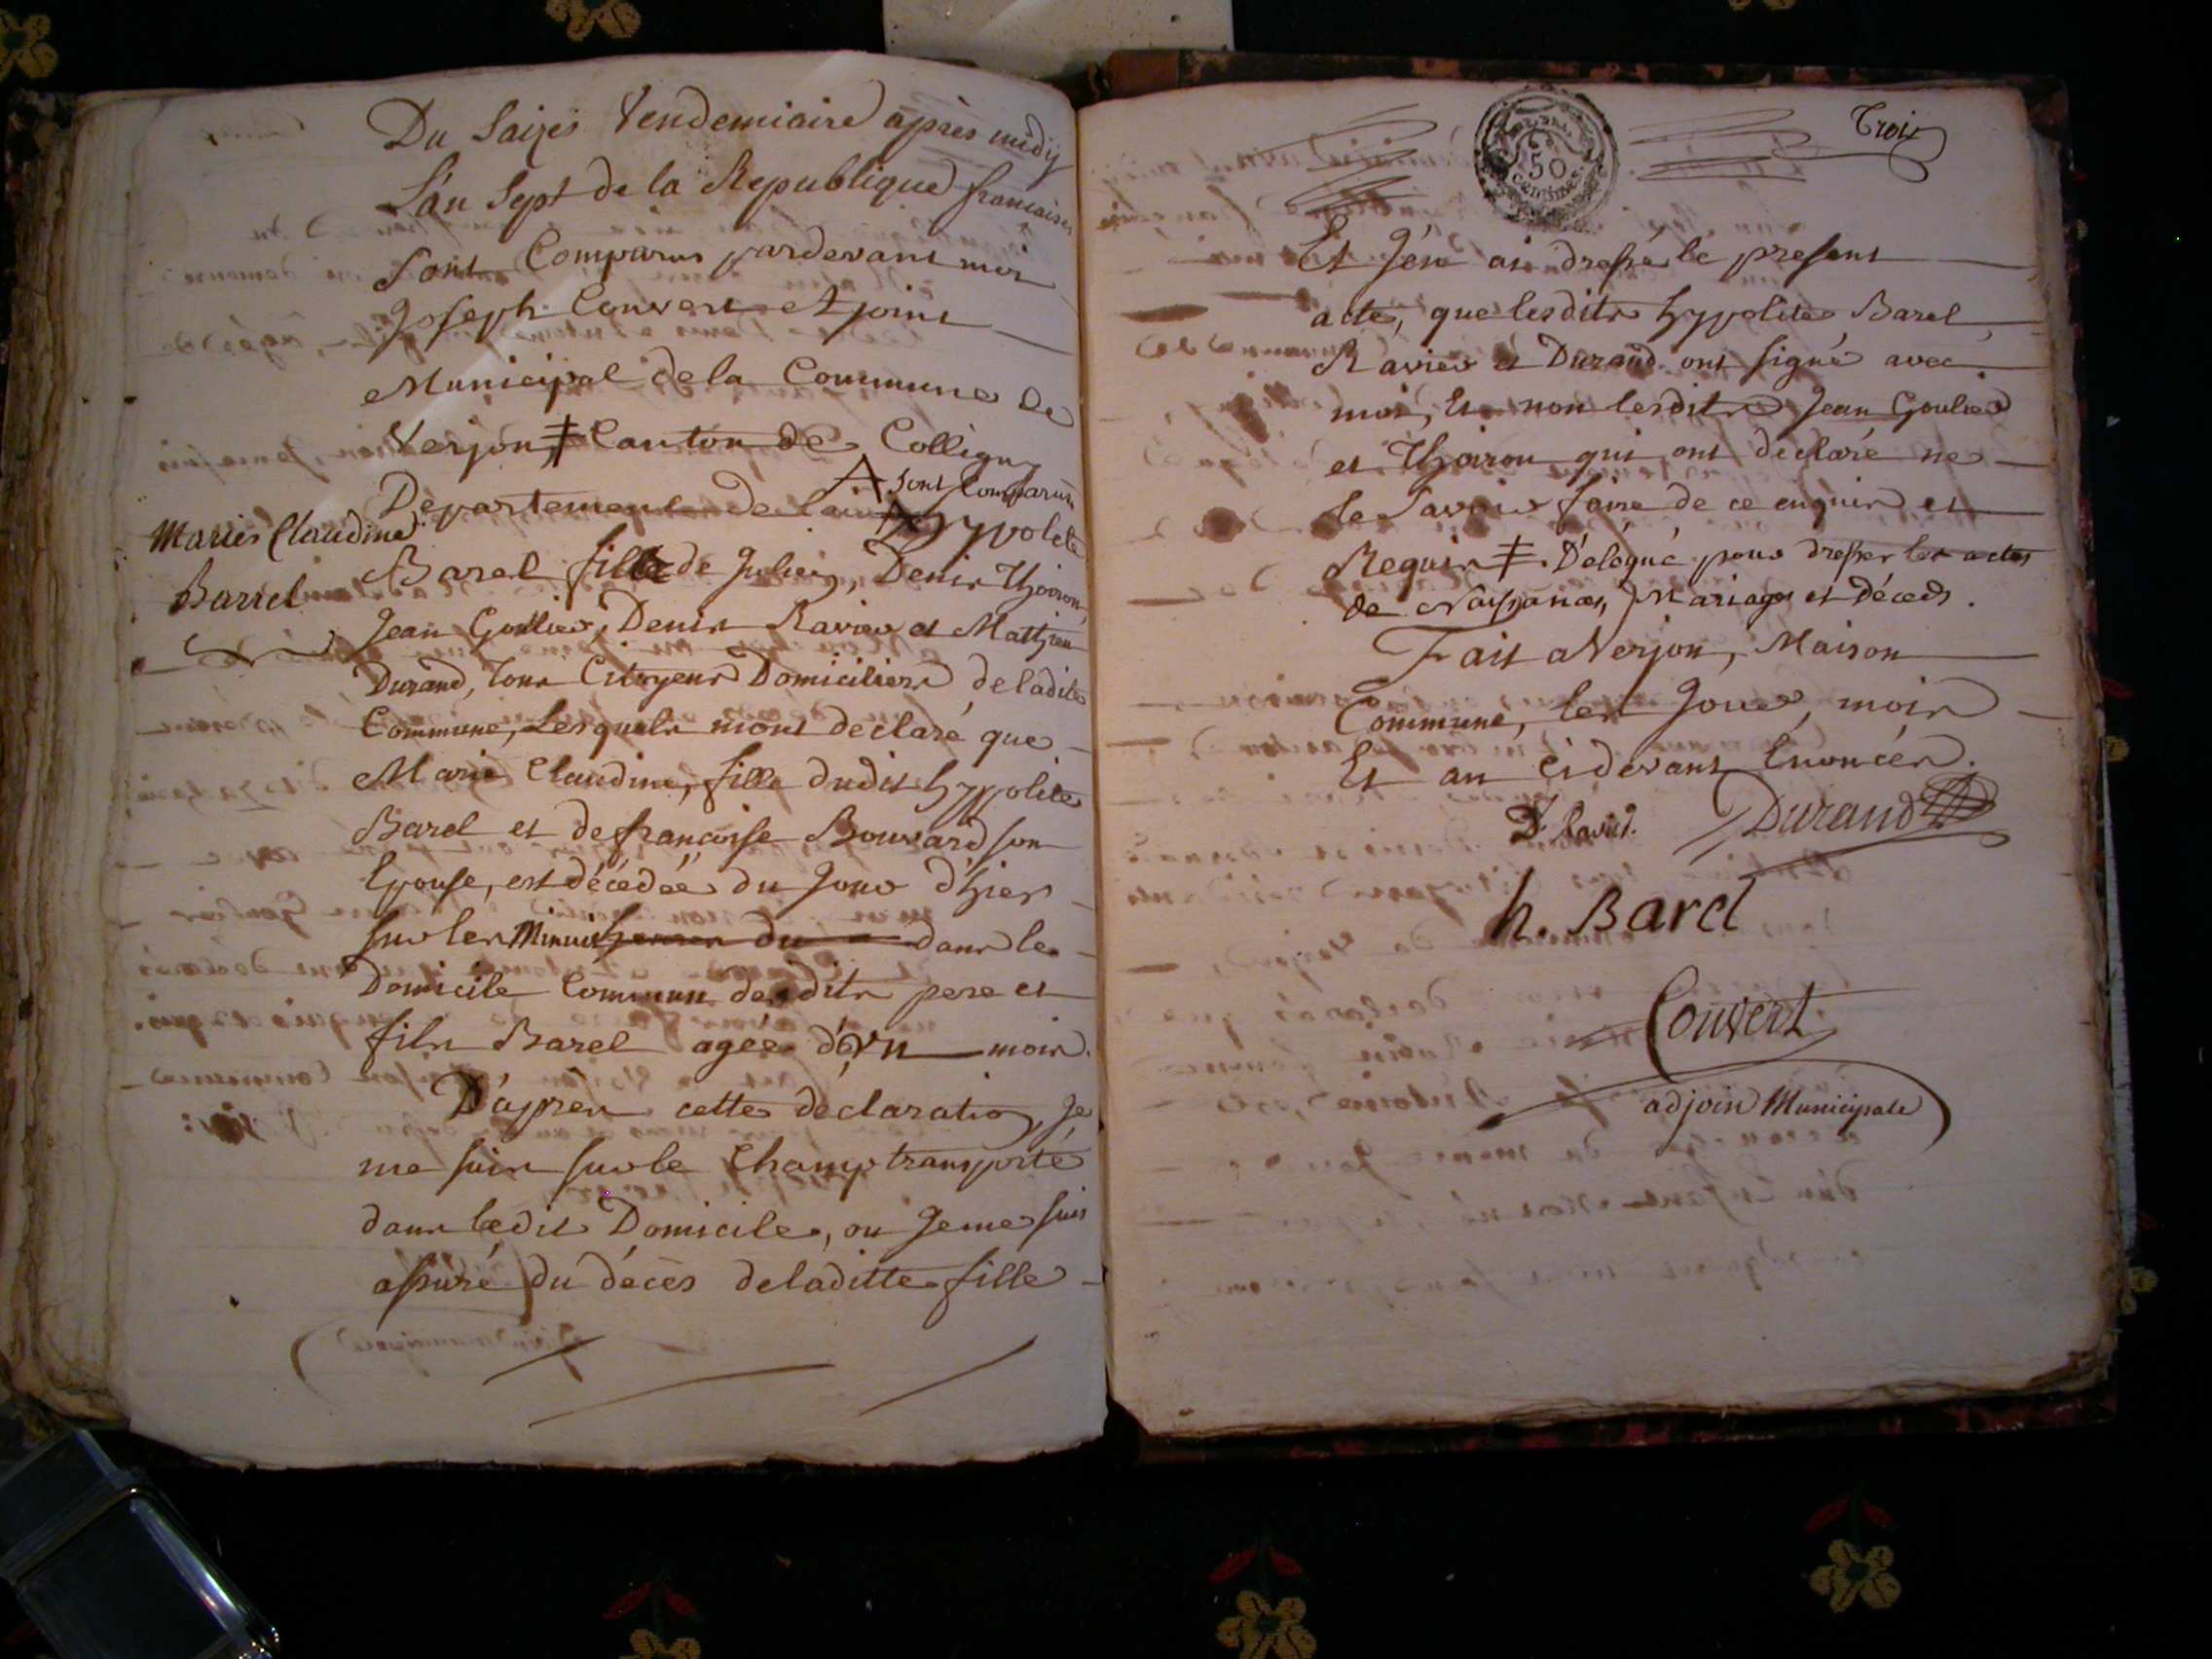 Du Saizes Vendemiaire après midÿ
L'án Sept de la Republique francaise
Sont Comparus pardevant moi
Joseph Convert Adjoint
Municipal de la Commune de
Verjon ‡ Canton de Colligny
Sont Comparus
Departement de Lain Hypolite
Marie Claudine
Barrel
Barel fills de Julien, Denis Thoiron
Jean Goulier, Denis Ravier et Mathieu
Durand, tous Citoyens Domiciliers de ladite
Commune, Lesquels mont declaré que
Marie Claudine, fille dudit hypolite
Barel et de francoise Bouvard son
Epouse, est décédée du Jour d'hier
sur les Minuit heures du dans le
Domicile Commun desdits pere et
fils Barel agée d'un mois.
D'apres cette declaration, Je
me suis sur le Champ transporté
dans ledit Domicile, ou Je me suis
assuré du décès de laditte fille
Trois
50
centimes
Et J'en ai dressé le present
acte, que lesdits hypolite Barel
Ravier et Durand ont signé avec
moi, Et non lesdits Jean Goulier
et Thoiron qui ont declaré ne
le Savoir faire de ce enquis et
Requis ‡ Délégué pour dresser les actes
de Naissances, Mariages et Décéds.
Fait a Verjon, Maison
Commune, les Jour, mois
Et an Cidevant Enoncés.
D. Ravier. Durand
h. Barel
Convert
adjoin Municipale